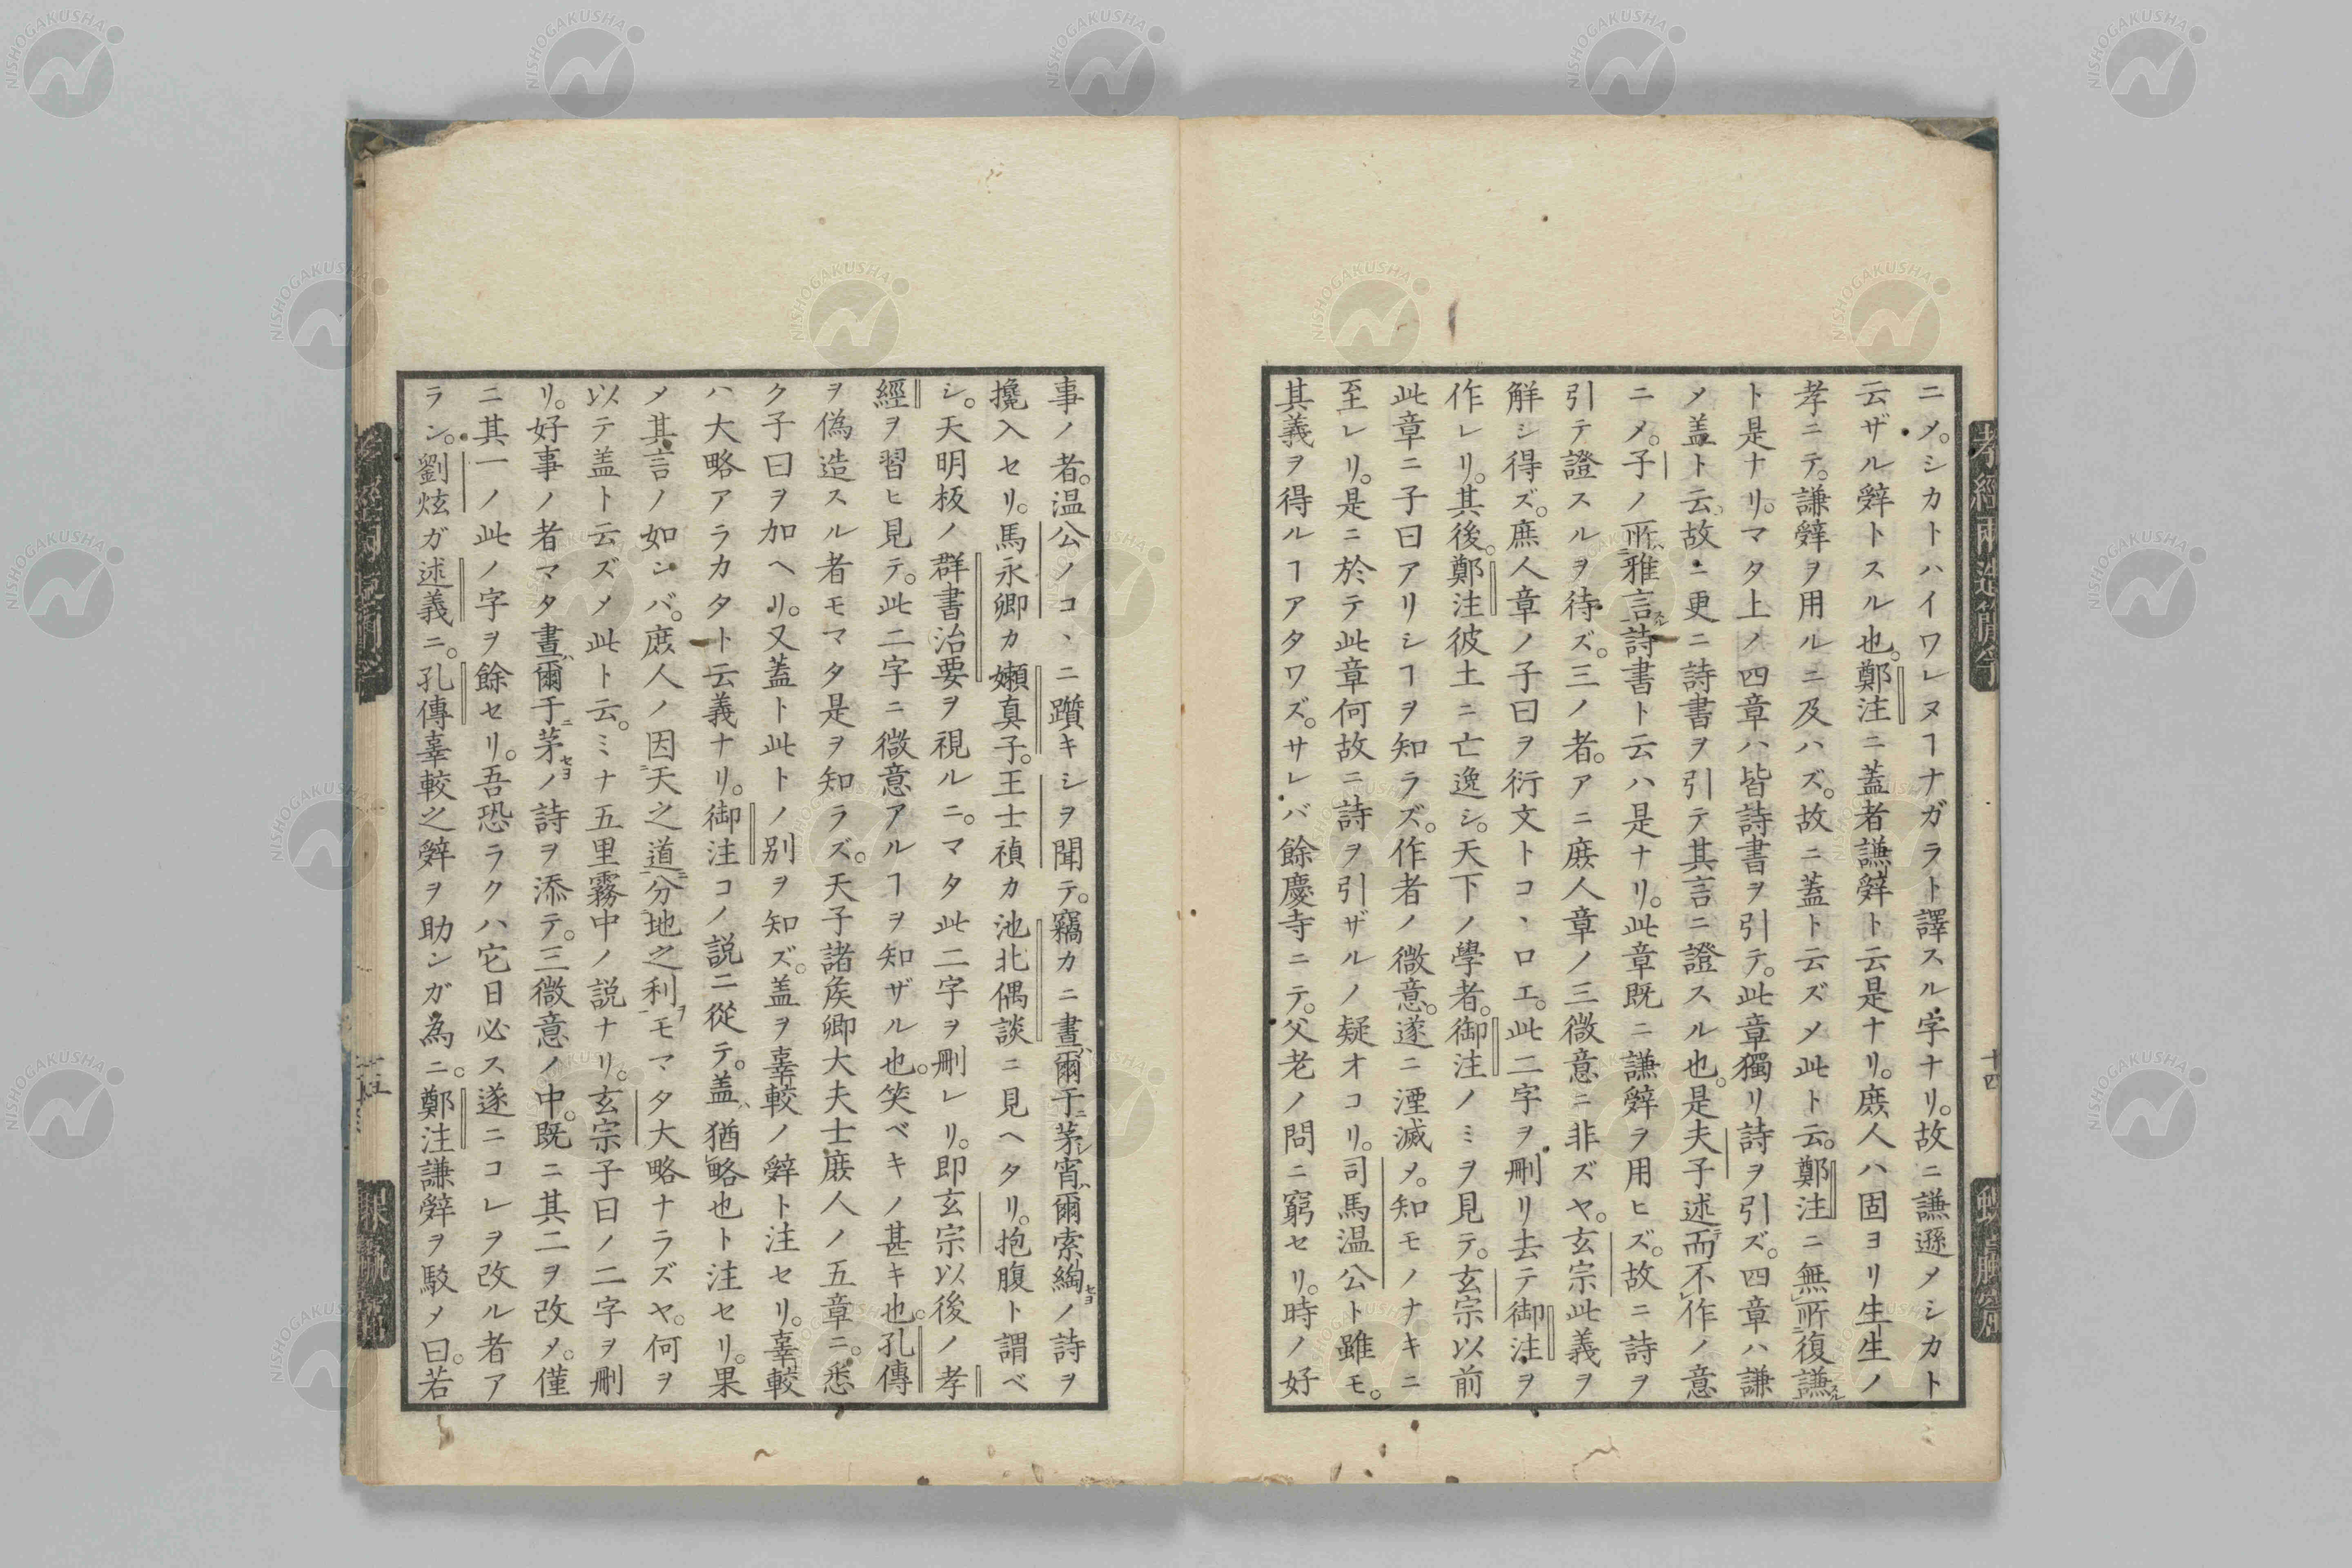 ニメ。シカトハイワレヌヿナガラト譯スル字ナリ。故ニ謙遜メシカト
云ザル辤トスル也。鄭注ニ蓋者謙辤ト云是ナリ。庶人ハ固ヨリ生生ノ
孝ニテ。謙辤ヲ用ルニ及ハズ。故ニ蓋ト云ズメ此ト云。鄭注ニ無所復謙
ト是ナリ。マタ上ノ四章ハ皆詩書ヲ引テ。此章獨リ詩ヲ引ズ。四章ハ謙
メ蓋ト云。故ニ更ニ詩書ヲ引テ其言ニ證スル也。是夫子述而不作ノ意
ニメ。子ノ所雅言詩書ト云ハ是ナリ。此章既ニ謙辤ヲ用ヒズ。故ニ詩ヲ
引テ證スルヲ待ズ。三ノ者。アニ庶人章ノ三微意ニ非ズヤ。玄宗此義ヲ
解シ得ズ。庶人章ノ子曰ヲ衍文トコヽロエ。此二字ヲ刪リ去テ御注ヲ
作レリ。其後。鄭注彼土ニ亡逸シ。天下ノ學者。御注ノミヲ見テ。玄宗以前
此章ニ子曰アリシヿヲ知ラズ。作者ノ微意。遂ニ湮滅メ。知モノナキニ
至レリ。是ニ於テ此章何故ニ詩ヲ引ザルノ疑オコリ。司馬温公ト雖モ。
其義ヲ得ルヿアタワズ。サレバ餘慶寺ニテ。父老ノ問ニ窮セリ。時ノ好
事ノ者。温公ノコヽニ躓キシヲ聞テ。竊カニ晝爾于茅宵爾索綯ノ詩ヲ
攙入セリ。馬永卿カ嬾真子。王士禎カ池北偶談ニ見ヘタリ。抱腹ト謂ベ
シ。天明板ノ群書治要ヲ視ルニ。マタ此二字ヲ刪レリ。即玄宗以後ノ孝
經ヲ習ヒ見テ。此二字ニ微意アルヿヲ知ザル也。笑ベキノ甚キ也。孔傳
ヲ偽造スル者モマタ是ヲ知ラズ。天子諸矦卿大夫士庶人ノ五章ニ。悉
ク子曰ヲ加ヘリ。又蓋ト此トノ別ヲ知ズ。蓋ヲ辜較ノ辤ト注セリ。辜較
ハ大略アラカタト云義ナリ。御注コノ説ニ從テ。蓋猶略也ト注セリ。果
メ其言ノ如ンバ。庶人ノ因天之道分地之利モマタ大略ナラズヤ。何ヲ
以テ蓋ト云ズメ此ト云。ミナ五里霧中ノ説ナリ。玄宗子曰ノ二字ヲ刪
リ。好事ノ者マタ晝爾于茅ノ詩ヲ添テ。三微意ノ中。既ニ其二ヲ改メ。僅
ニ其一ノ此ノ字ヲ餘セリ。吾恐ラクハ它日必ス遂ニコレヲ改ル者ア
ラン。劉炫ガ述義ニ。孔傳辜較之辤ヲ助ンガ為ニ。鄭注謙辤ヲ駁メ曰。若